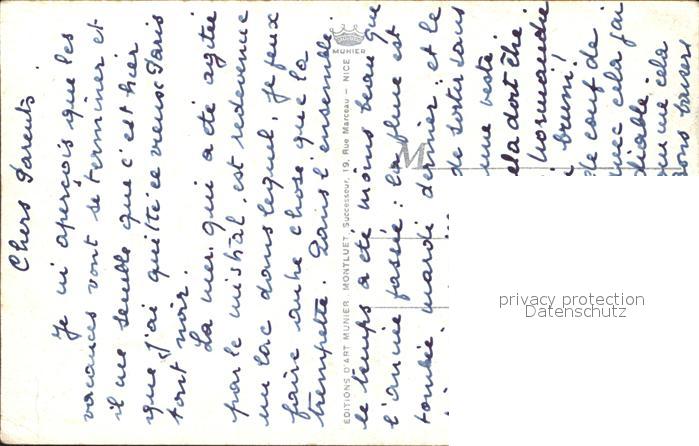 Chers Parents.
Je m'aperçois que les
vacances vont se terminer et
il me semble que c'est hier
que j'ai quitté ce vieux Paris
tout noir.
La mer, qui a été agitée
par le mistral, est redevenue
un lac dans lequel, je peux
faire autre chose que la
trempette. Dans l'ensemble
MUNIER
EDITIONS D'ART MUNIER. MONTLUET, Successeur, 19, Rue Marceau - NICE
le temps a été moins beau que
l'année passée : la pluie est
tombée, mardi dernier et le
de sortir sans
une veste
ela doit être
Normandie
bruine!
de coup de
avec cela j'ai
diable
cela
bons baisers
M
privacy protection
Datenschutz